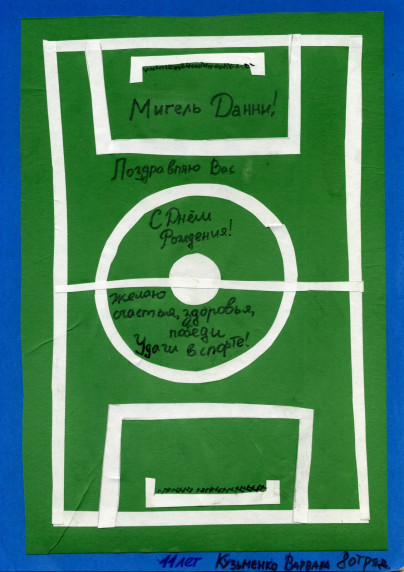 Мигель Данни!
Поздравляю Вас
С Днём
Рождения!
Желаю
счастья, здоровья,
победы
Удачи в спорте!
11 лет Кузьменко Варвара 8 отряд